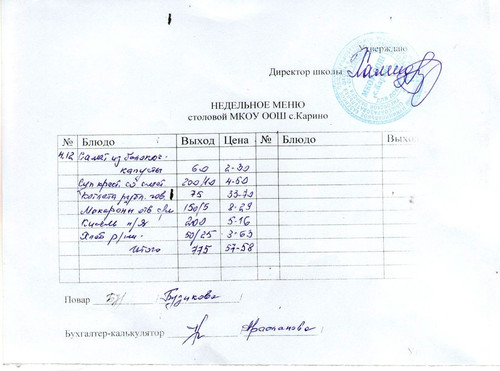 Утверждаю
Директор школы
НЕДЕЛЬНОЕ МЕНЮ
столовой МКОУ ООШ с.Карино
№ Блюдо Выход Цена № Блюдо Выхо
Салат из
капусты 60 2-30
Суп крест. со смет 200/10 4-50
Котлета рубл. гов. 75 33-70
Макароны отв 150/5 8-29
Кисель п/я 200 5-16
Хлеб 50/25 3-63
Итого 775 57-58
Повар
Бухгалтер-калькулятор